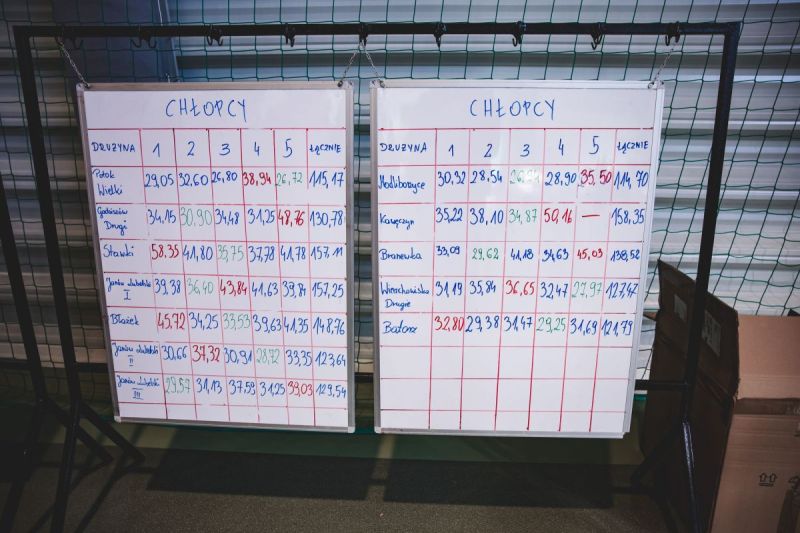 CHŁOPCY
DRUŻYNA 1 2 3 4 5 ŁĄCZNIE
Potok Wielki 29,05 32,60 26,80 38,94 26,72 115,17
Godziszów Drugi 34,15 30,90 34,48 31,25 48,76 130,78
Stawki 58,35 41,80 35,75 37,78 41,78 157,11
Janów Lubelski I 39,38 36,40 43,84 41,63 39,84 157,25
Błażek 45,72 34,25 33,53 39,63 41,35 148,76
Janów Lubelski II 30,66 37,32 30,91 28,72 33,35 123,64
Janów Lubelski III 29,57 31,13 37,59 31,25 39,03 129,54
CHŁOPCY
DRUŻYNA 1 2 3 4 5 ŁĄCZNIE
Modliborzyce 30,32 28,54 28,90 35,50 114,70
Kawęczyn 35,22 38,10 34,87 50,16 — 158,35
Branewka 33,09 29,62 41,18 34,63 45,03 138,52
Wierzchowiska Drugie 31,19 35,84 36,65 32,47 27,97 127,47
Batorz 32,80 29,38 31,47 29,25 31,69 121,79